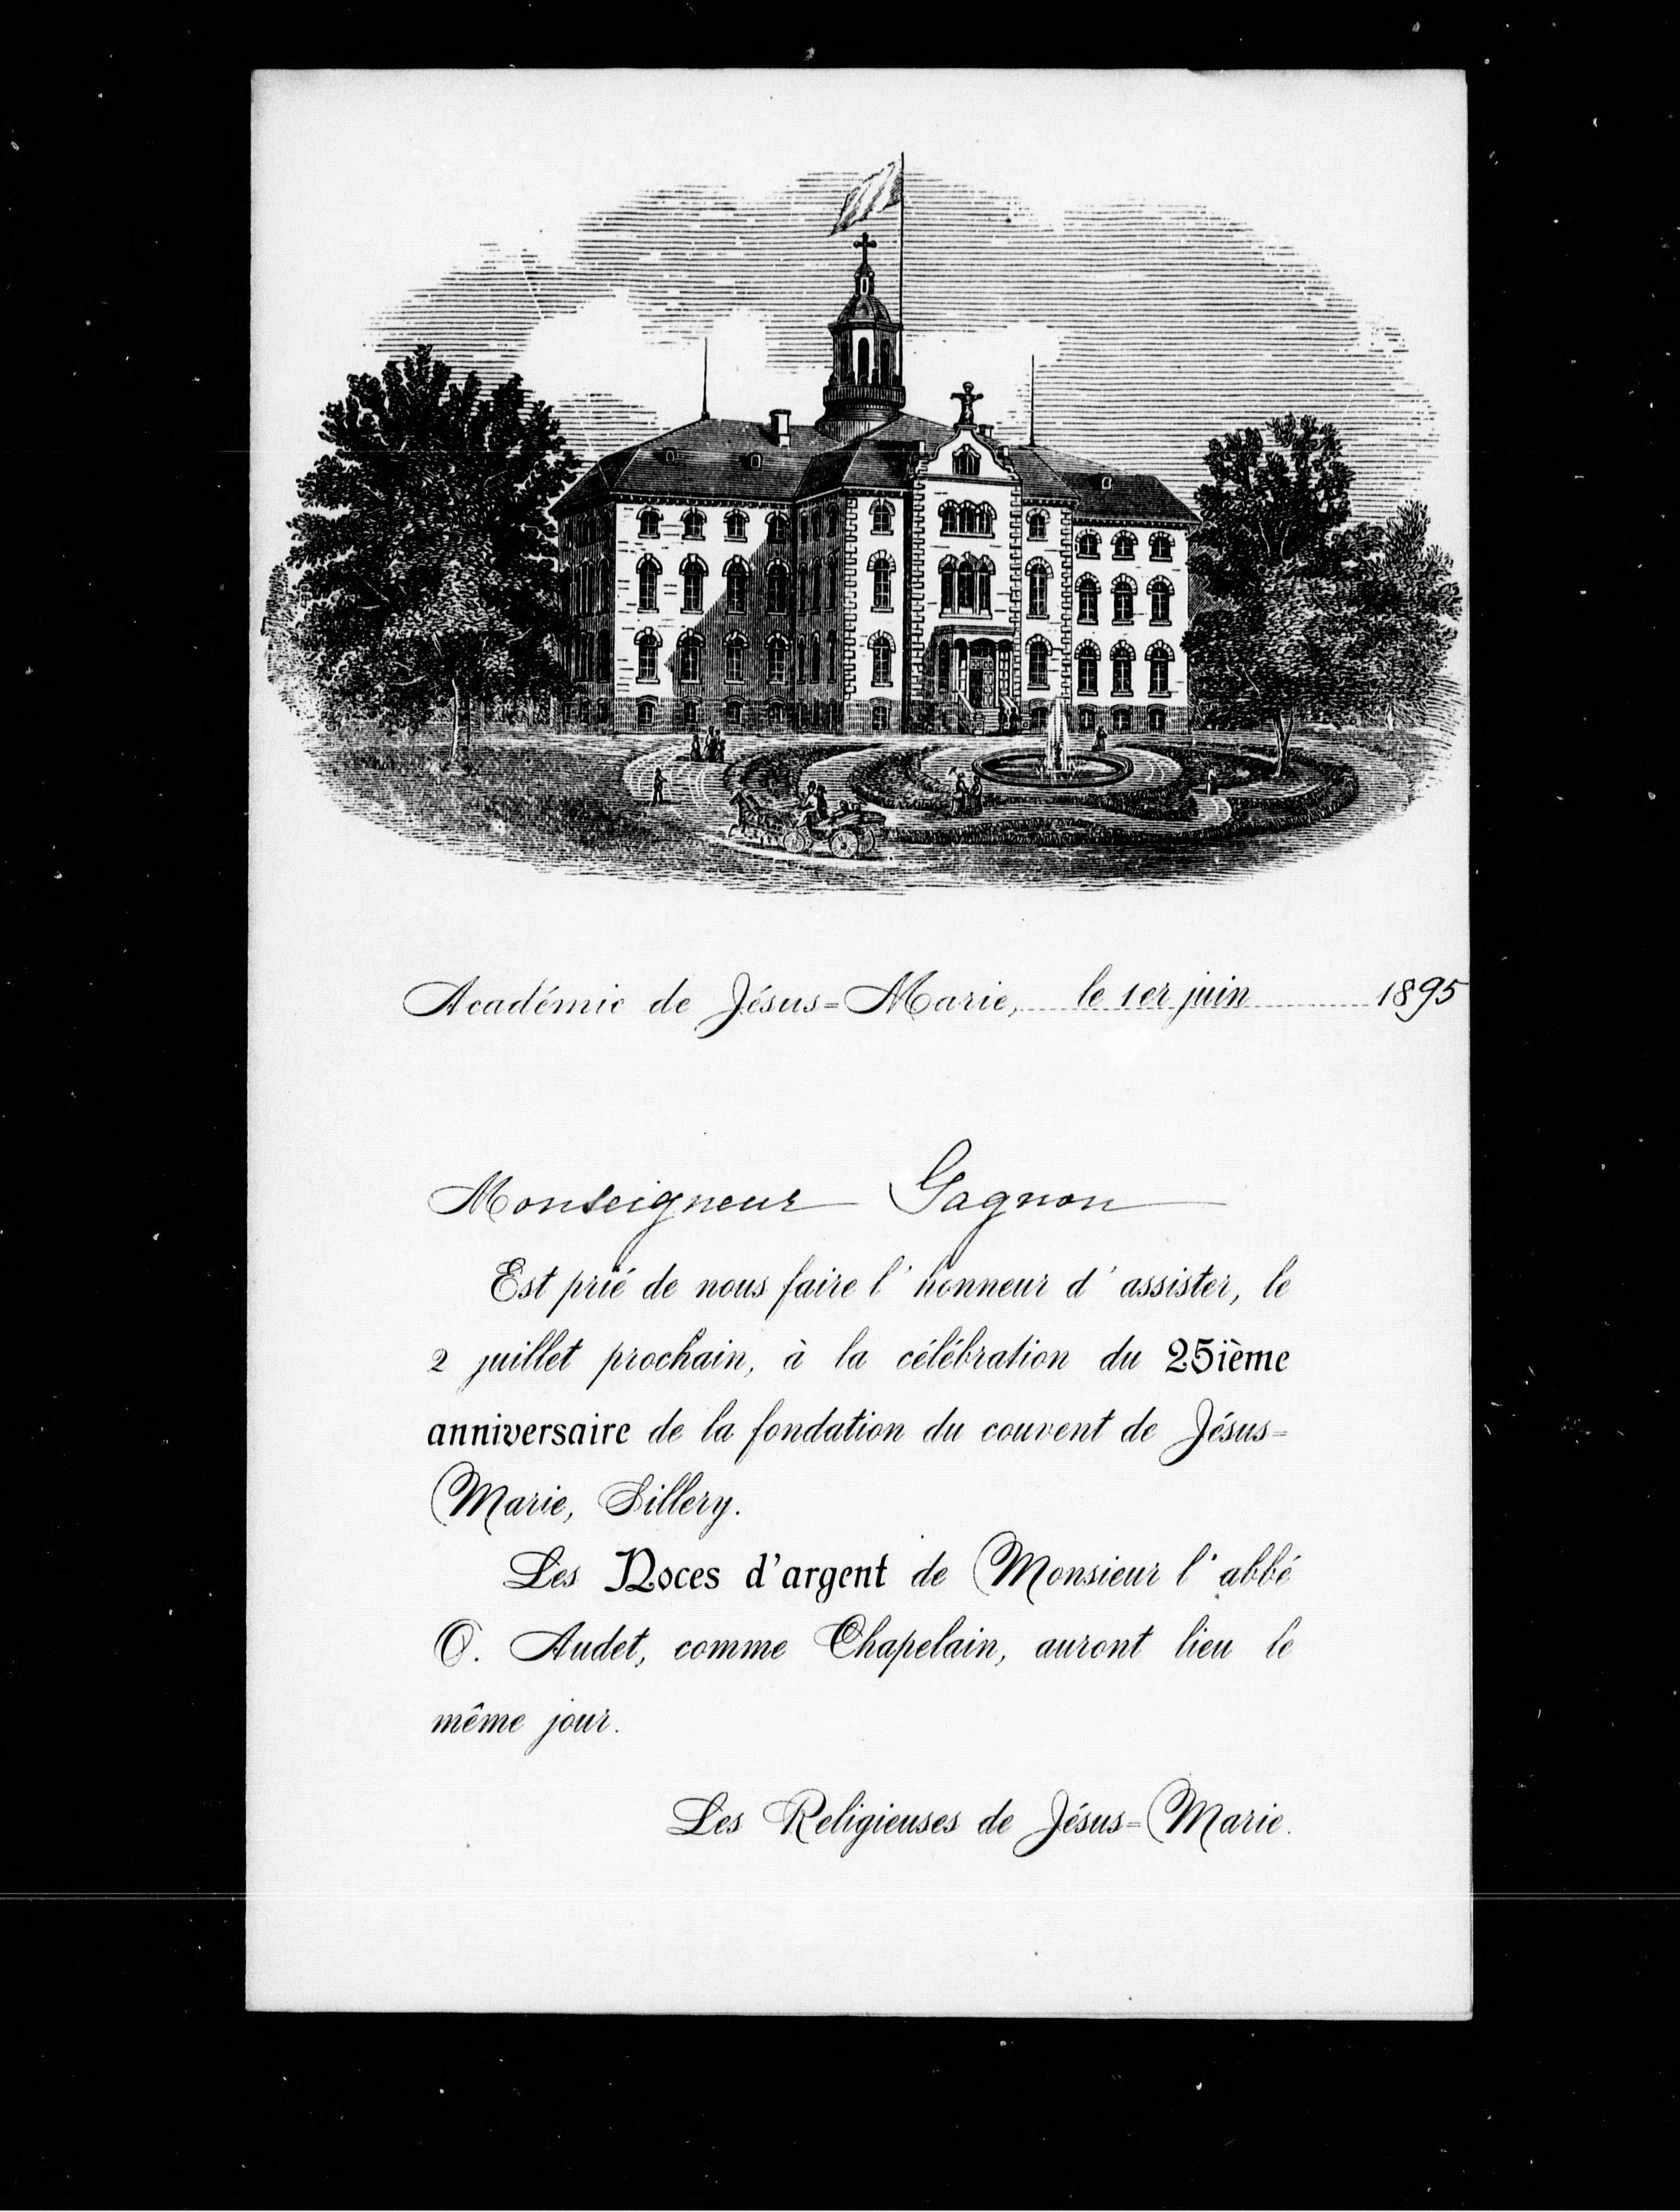 Académie de Jésus=Marie, le 1er juin 1895
Monseigneur Gagnon
Est prié de nous faire l'honneur d'assister, le
2 juillet prochain, à la célébration du 25ième
anniversaire de la fondation du couvent de Jésus=
Marie, Sillery.
Les Noces d'argent de Monsieur l'abbé
O. Audet, comme Chapelain, auront lieu le
même jour.
Les Religieuses de Jésus=Marie.